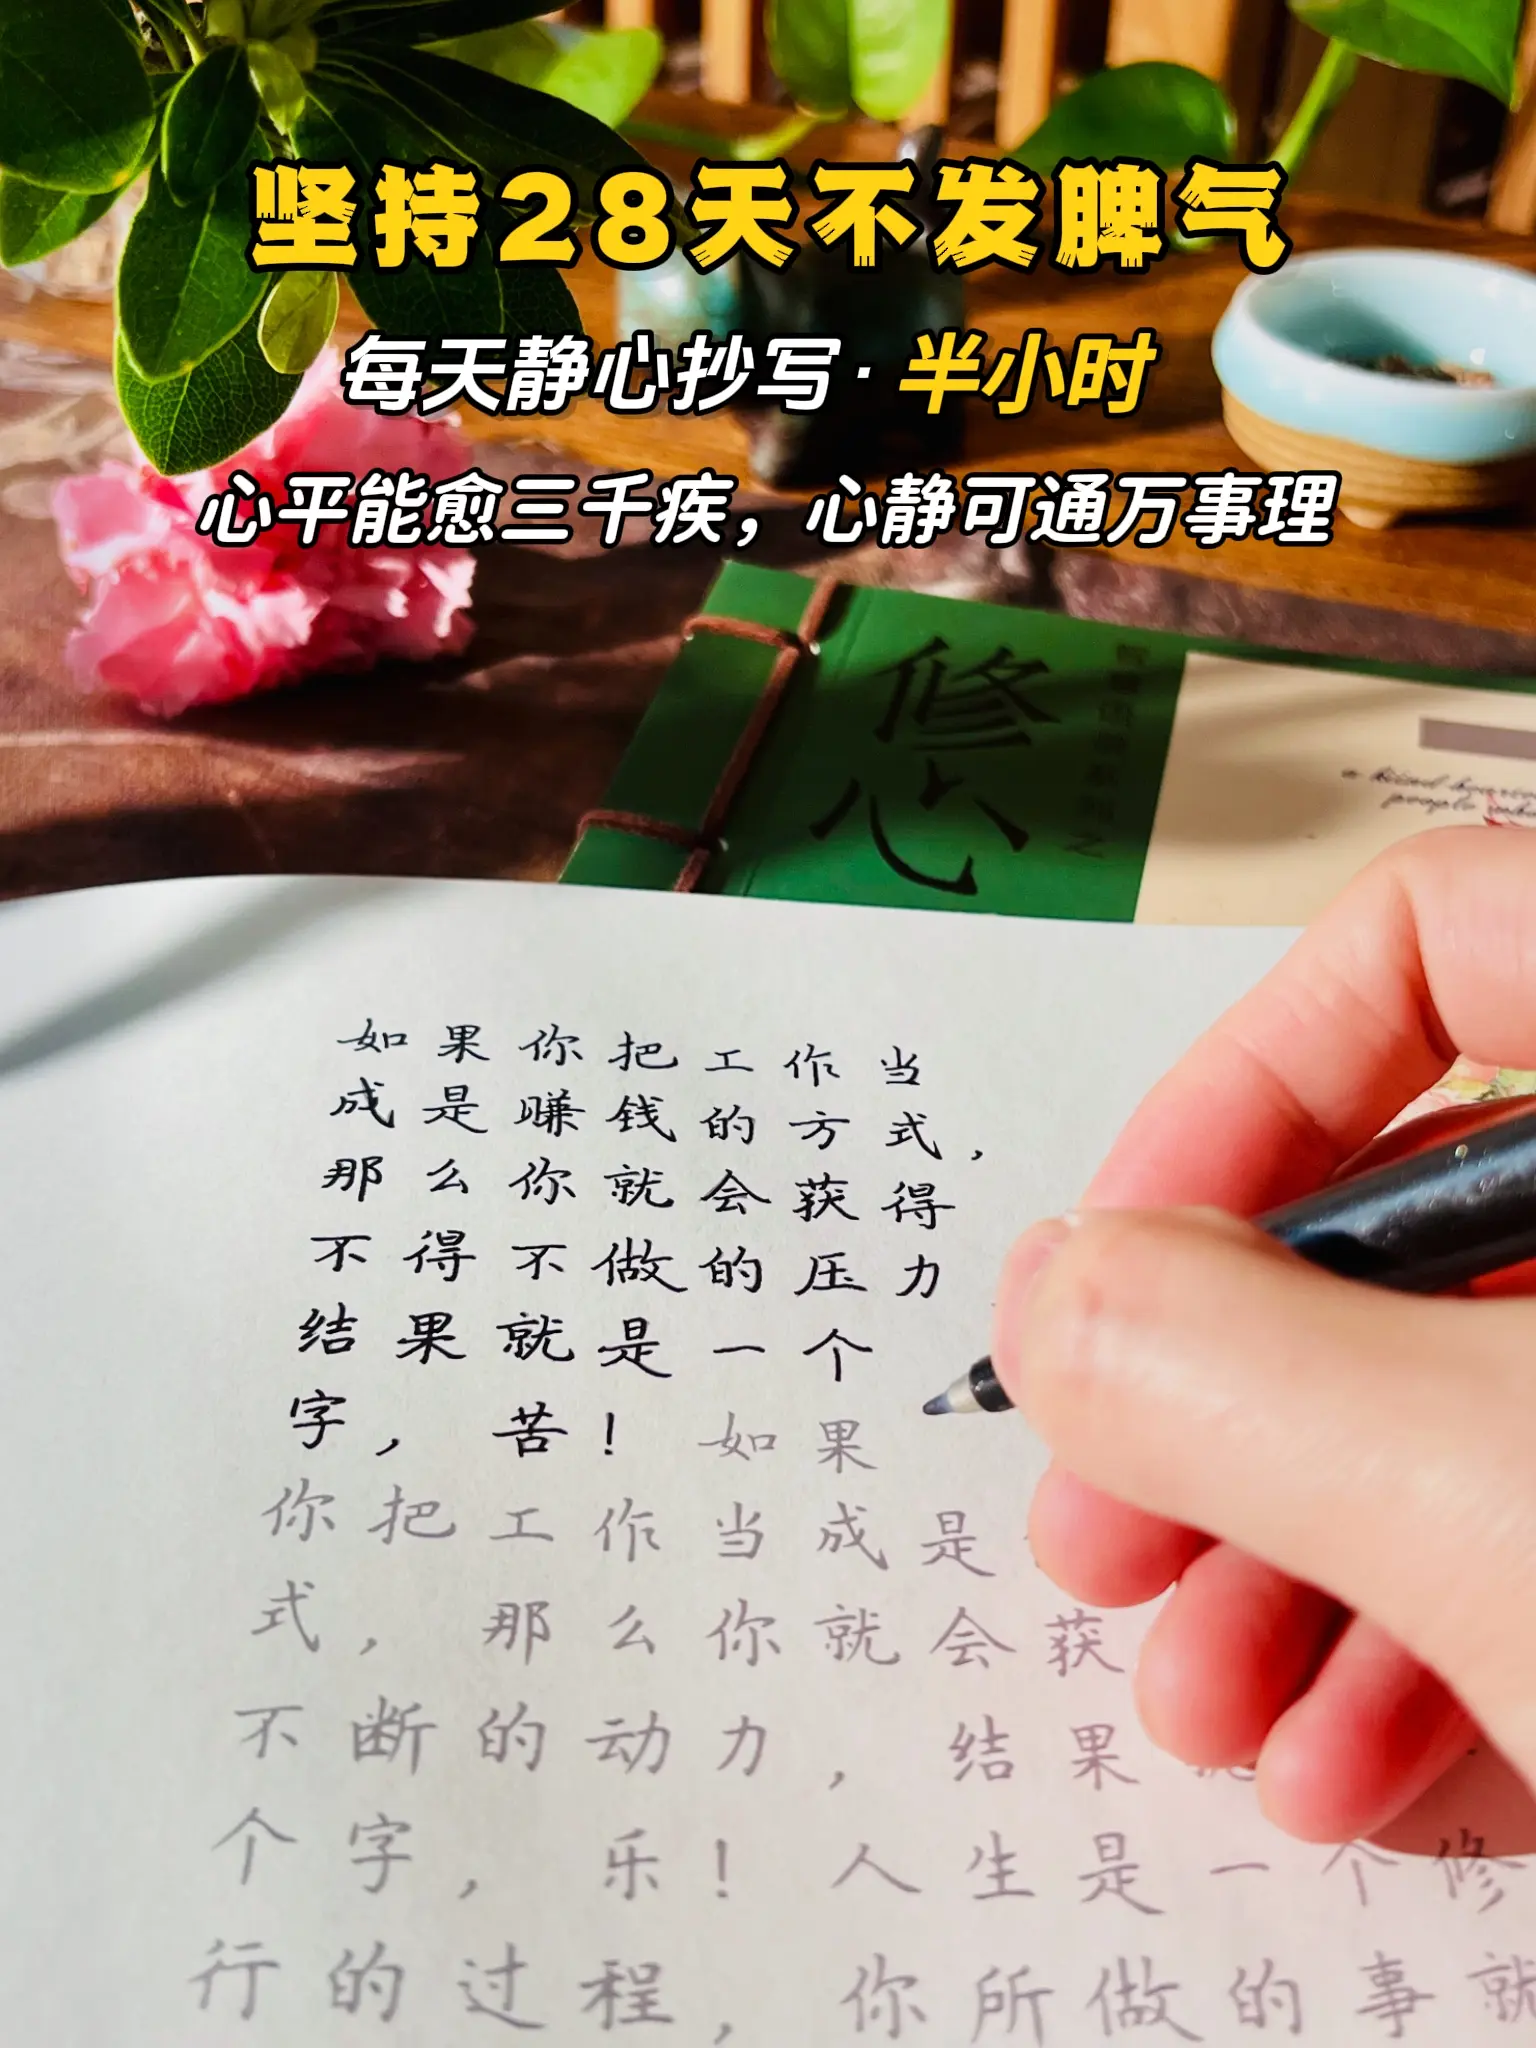 坚持28天不发脾气
每天静心抄写·半小时
心平能愈三千疾，心静可通万事理
修心
a kind
people who
如果你把工作当
成是赚钱的方式，
那么你就会获得
不得不做的压力
结果就是一个
字，苦！如果
你把工作当成是
式，那么你就会获
不断的动力，结果
个字，乐！人生是一个修
行的过程，你所做的事就